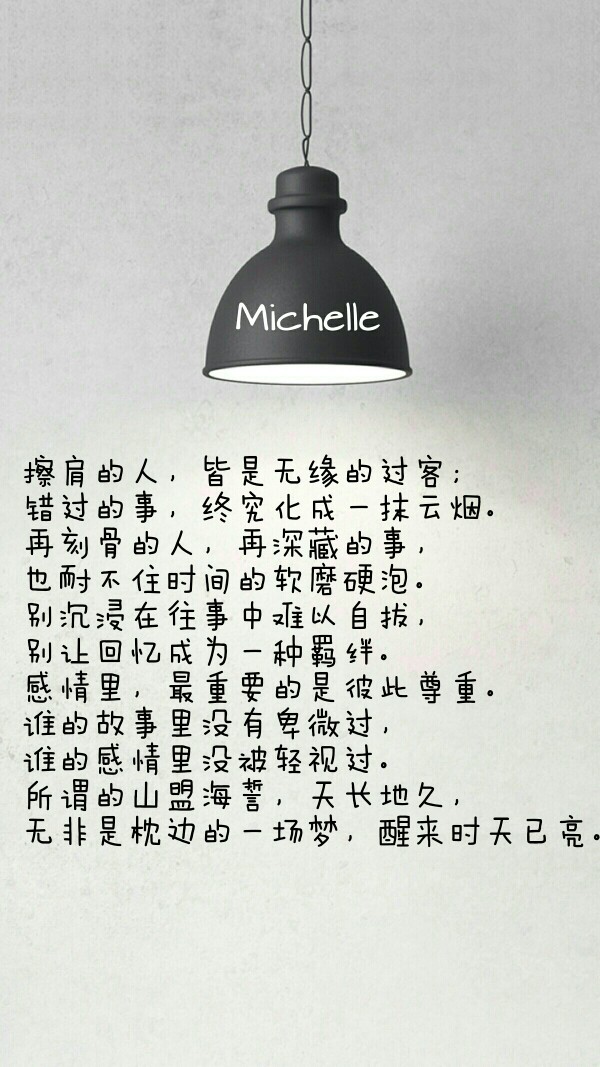 Michelle
擦肩的人，皆是无缘的过客；
错过的事，终究化成一抹云烟。
再刻骨的人，再深藏的事，
也耐不住时间的软磨硬泡。
别沉浸在往事中难以自拔，
别让回忆成为一种羁绊。
感情里，最重要的是彼此尊重。
谁的故事里没有卑微过，
谁的感情里没被轻视过。
所谓的山盟海誓，天长地久，
无非是枕边的一场梦，醒来时天已亮。